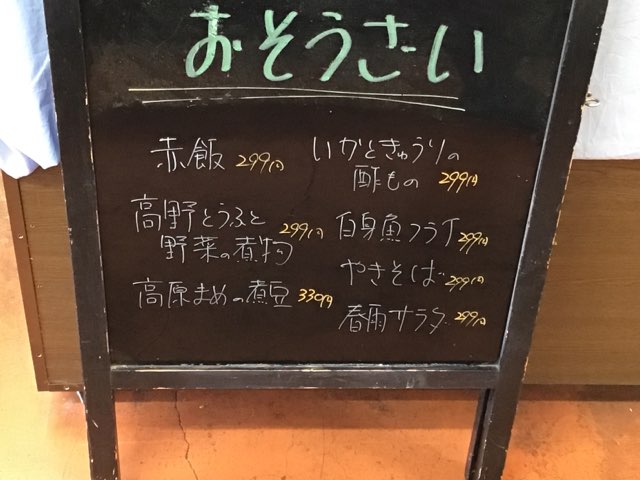 おそうざい
赤飯 299円
高野とうふと
野菜の煮物 299円
高原まめの煮豆 330円
いかときゅうりの
酢もの 299円
白身魚フライ 299円
やきそば 299円
春雨サラダ 299円